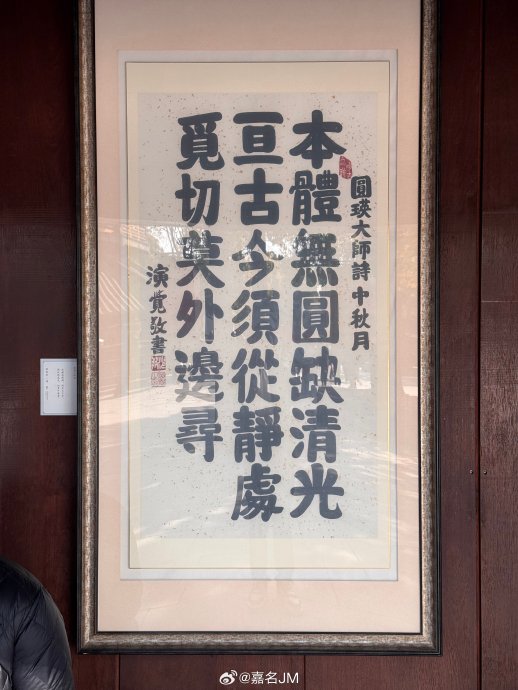 圓瑛大師詩中秋月
本體無圓缺清光
亘古今須從靜處
覓切莫外邊尋
演覺敬書
@嘉名JM